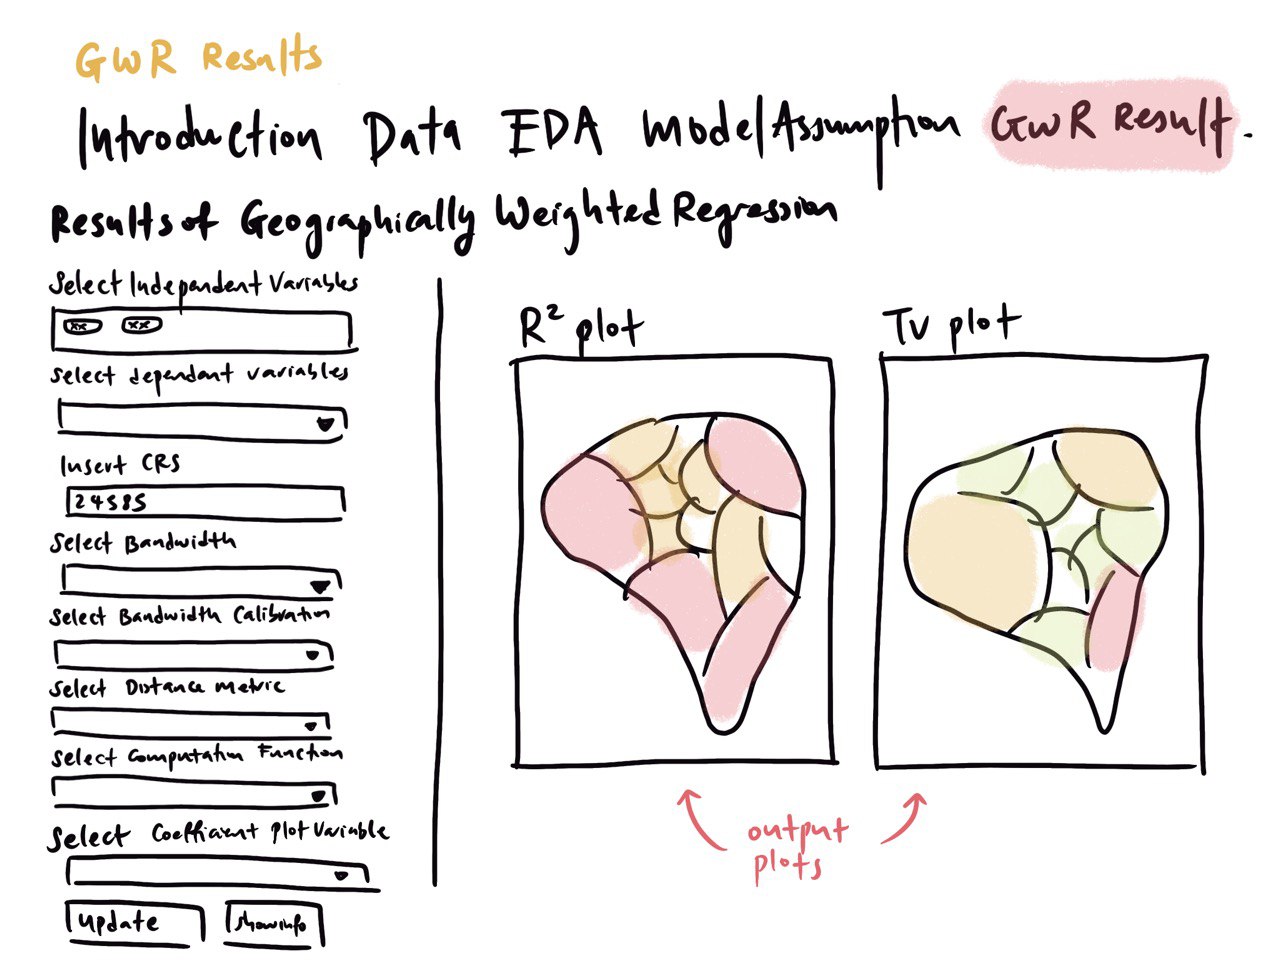 GWR Results
Introduction Data EDA Model Assumption GWR Result.
Results of Geographically Weighted Regression
Select Independent Variables
xx xx
Select dependant variables
Insert CRS
24585
Select Bandwidth
Select Bandwidth Calibration
Select Distance metric
Select Computation Function
Select Coefficient Plot Variable
update showinfo
R² plot
Tv plot
output
plots